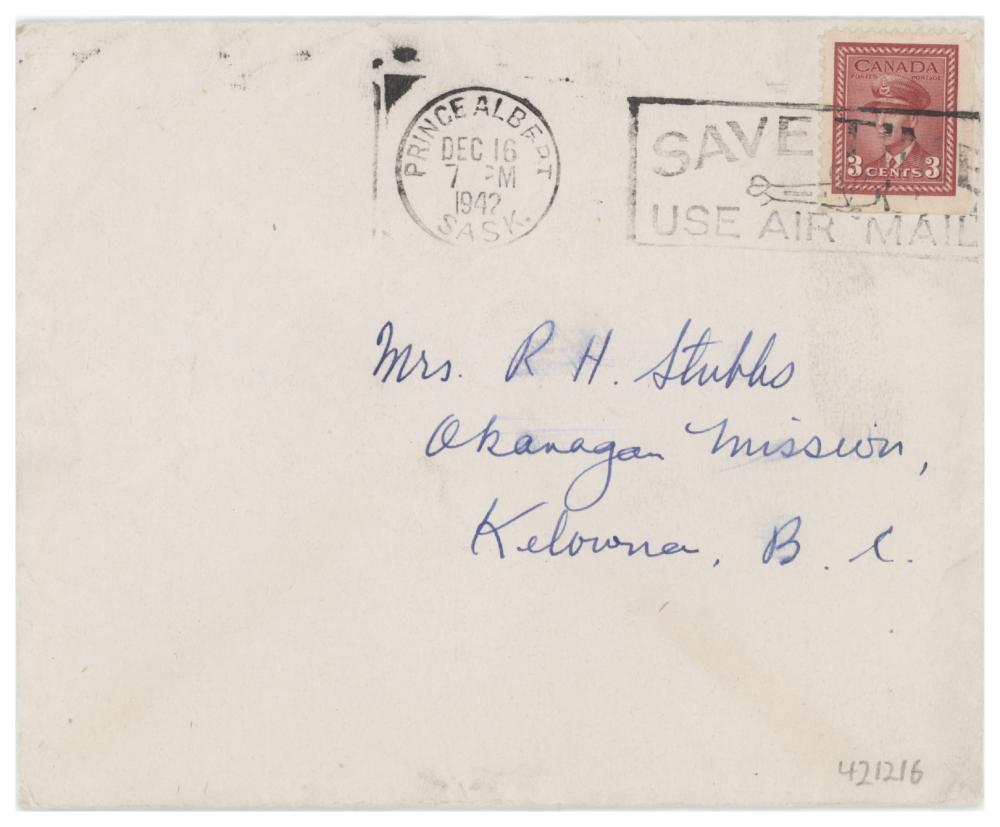 PRINCE ALBERT
DEC 16
7 PM
1942
SASK.
SAVE
USE AIR MAIL
CANADA
POSTES POSTAGE
3 CENTS 3
Mrs. R H. Stubbs
Okanagan Mission,
Kelowna, B. C.
421216